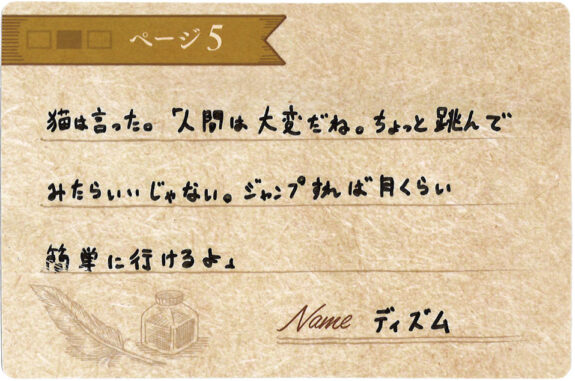 ページ5
猫は言った。「人間は大変だね。ちょっと跳んで
みたらいいじゃない。ジャンプすれば月くらい
簡単に行けるよ」
Name ディズム